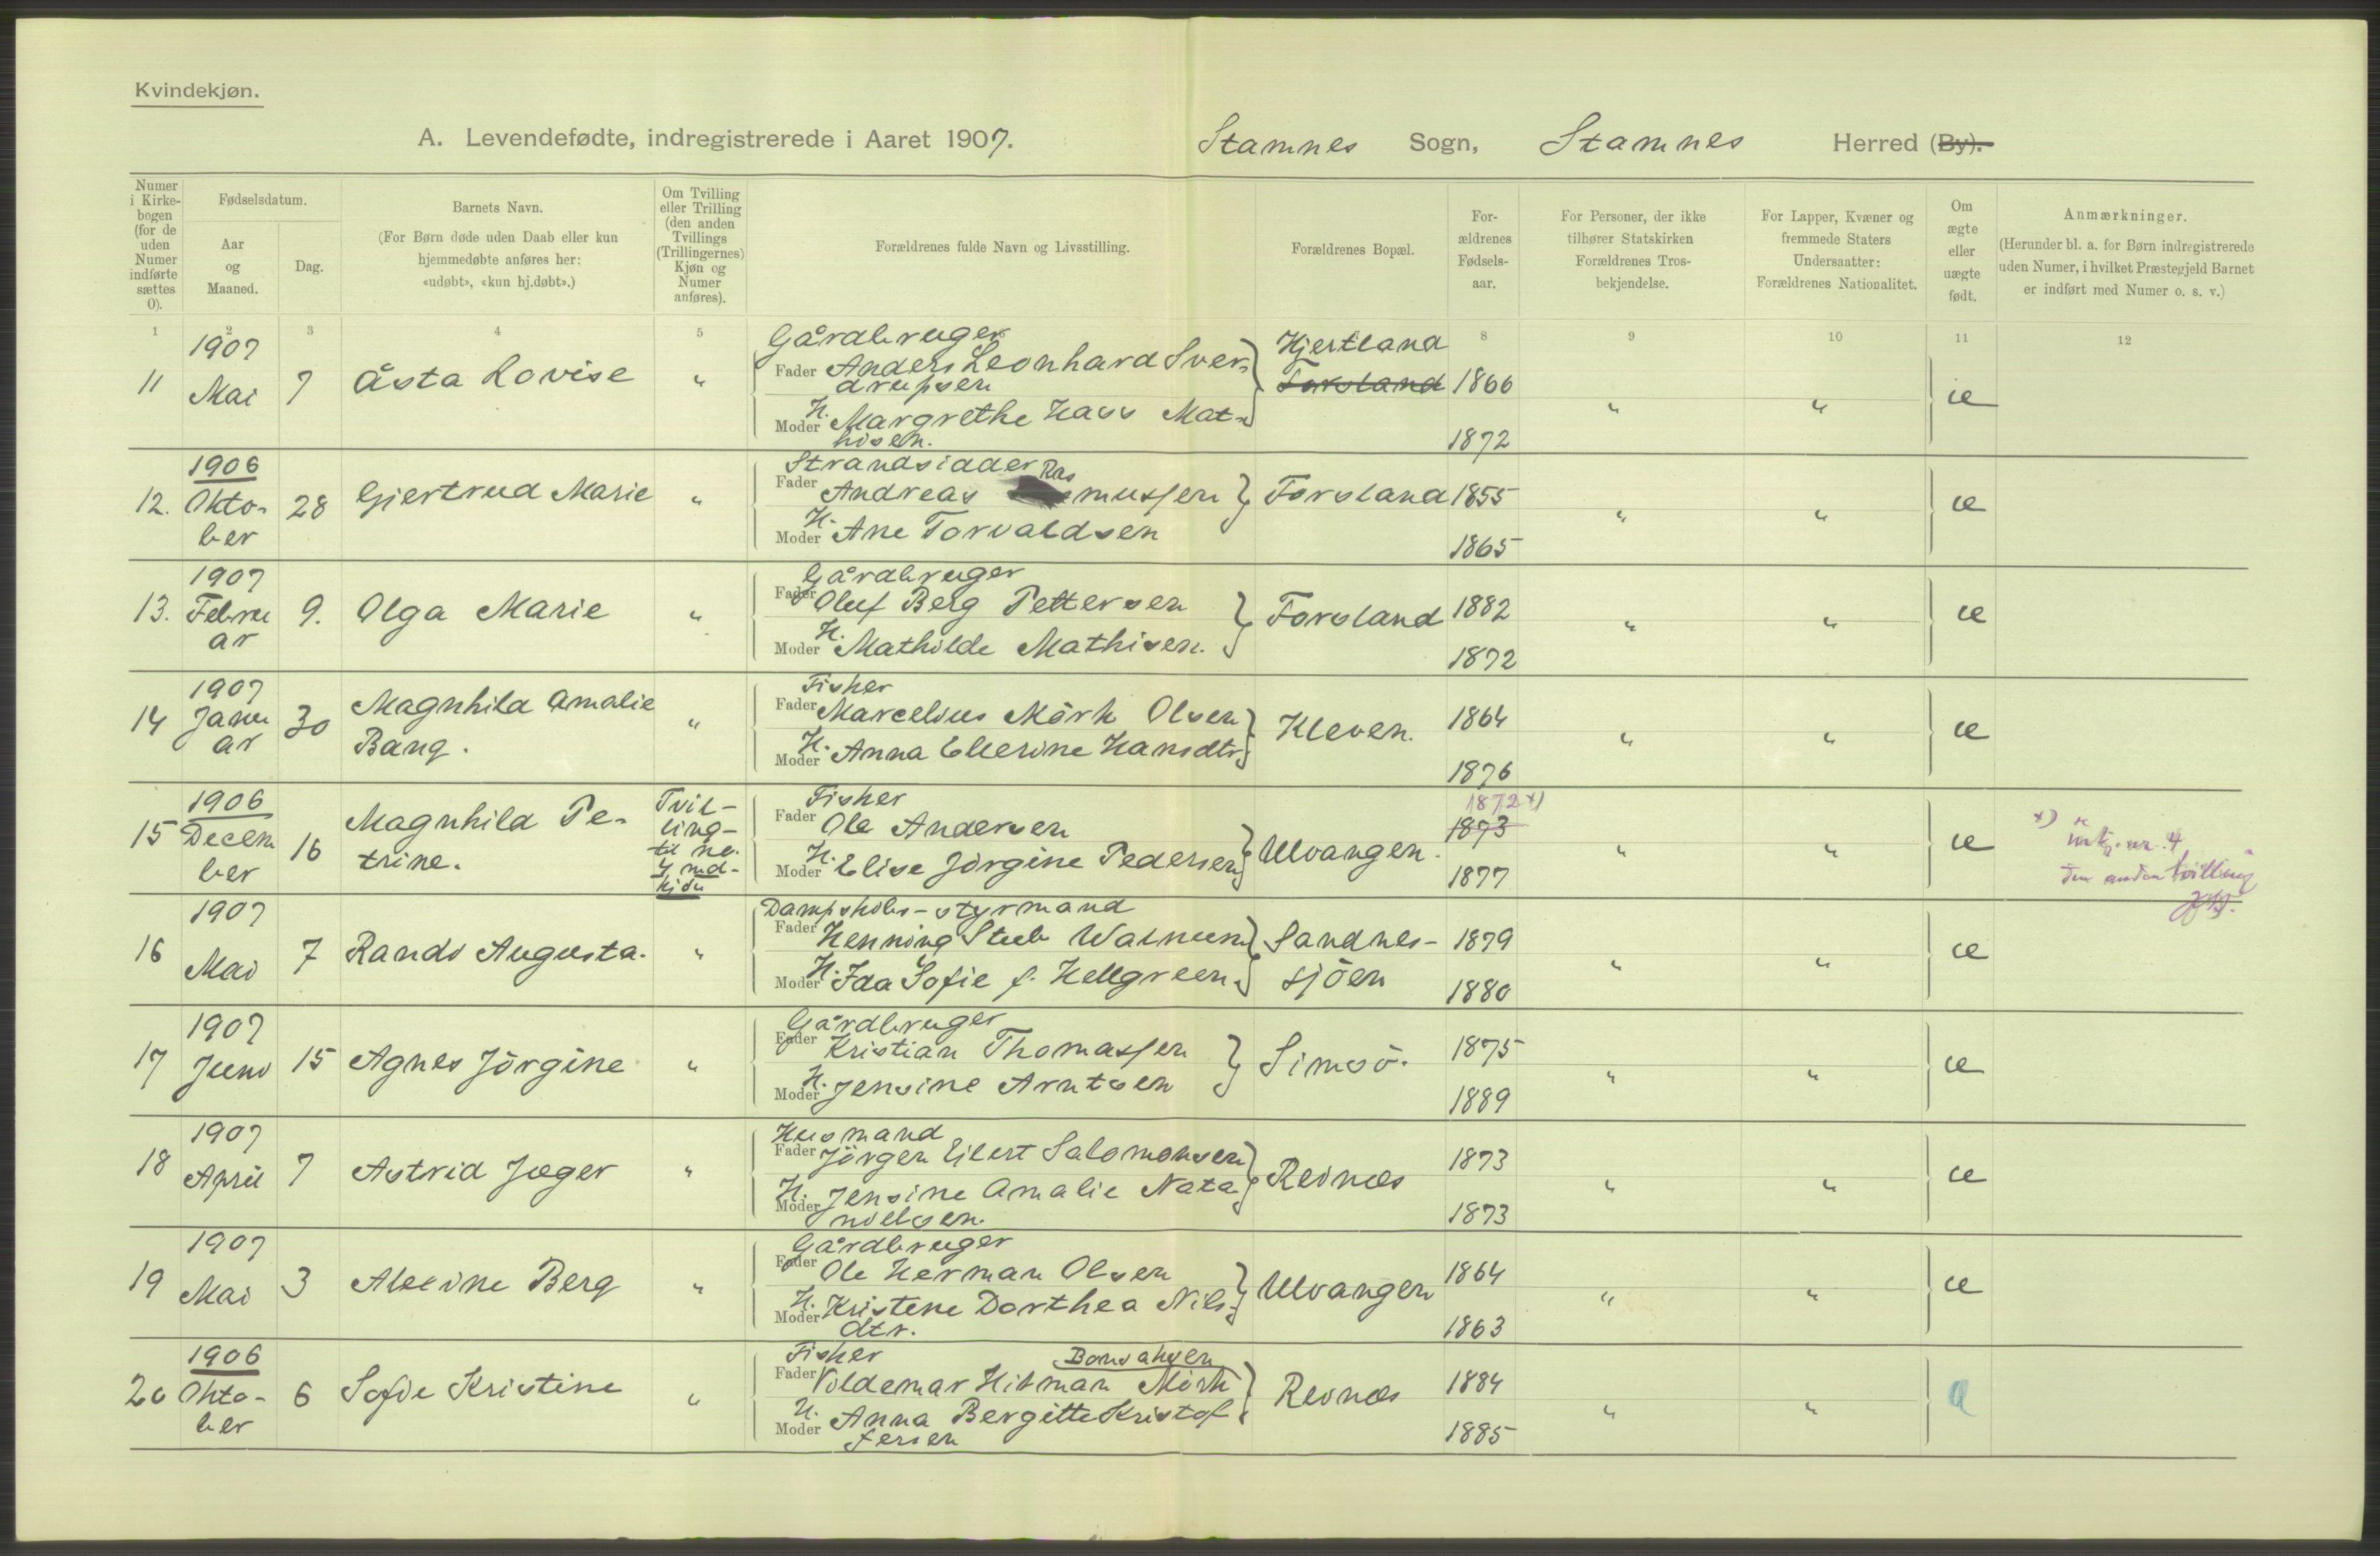 Kvindekjøn.
A. Levendefødte, indregistrerede i Aaret 1907. Stamnes Sogn, Stamnes Herred (By).
Numer i Kirke-bogen (for de uden Numer indførte sættes 0).
Fødselsdatum.
Aar og Maaned.
Dag.
Barnets Navn.
(For Børn døde uden Daab eller kun hjemmedøbte anføres her: «udøbt», «kun hj.døbt».)
Om Tvilling eller Trilling (den anden Tvillings (Trillingernes) Kjøn og Numer anføres).
Forældrenes fulde Navn og Livsstilling.
Forældrenes Bopæl.
For-ældrenes Fødsels-aar.
For Personer, der ikke tilhører Statskirken Forældrenes Tros-bekjendelse.
For Lapper, Kvæner og fremmede Staters Undersaatter: Forældrenes Nationalitet.
Om ægte eller uægte født.
Anmærkninger.
(Herunder bl. a. for Børn indregistrerede uden Numer, i hvilket Præstegjeld Barnet er indført med Numer o. s. v.)
1 2 3 4 5 8 9 10 11 12
11 1907 Mai 7 Åsta Lovise " Gårdbruger
Fader Anders Leonhard Sver-
drupsen Hjertland Forsland 1866
H. Moder Margrethe Hass Mat-
hisen. 1872 " " æ
12. 1906 Okto-
ber 28 Gjertrud Marie " Strandsidder
Fader Andreas Rasmussen Forsland 1855
H. Moder Ane Torvaldsen 1865 " " æ
13. 1907 Febru
ar 9. Olga Marie " Gårdbruger
Fader Oluf Berg Pettersen Forsland 1882
H. Moder Mathilde Mathisen. 1872 " " æ
14 1907 Janu
ar 30 Magnhild Amalie
Bang. " Fisker
Fader Marcelius Mörk Olsen Kleven. 1864
H. Moder Anna Ellerine Hansdtr. 1876 " " æ
15 1906 Decem
ber 16 Magnhild Pe-
trine. Tvil-
ling-
til no.
4 md-
kjön Fisker
Fader Ole Andersen Ulvangen. 1872 x)
1873
H. Moder Elise Jörgine Pedersen 1877 " " æ x)
nr. 4
den anden tvilling
16 1907 Mai 7 Randi Augusta. " Dampskibs-styrmand
Fader Henning Stub Walnum Sandnes-
sjöen 1879
H. Moder Ida Sofie f. Hellgreen. 1880 " " æ
17 1907 Juni 15 Agnes Jörgine " Gårdbruger
Fader Kristian Thomassen Simsö. 1875
H. Moder Jensine Arntsen 1889 " " æ
18 1907 April 7 Astrid Jæger " Husmand
Fader Jörgen Eilert Salomonsen Reinæs 1873
H. Moder Jensine Amalie Nata
nielsen. 1873 " " æ
19 1907 Mai 3 Alexine Berg " Gårdbruger
Fader Ole Herman Olsen Ulvangen 1864
H. Moder Kristine Dorthea Nils-
dtr. 1863 " " æ
20 1906 Okto-
ber 6 Sofie Kristine " Fisker
Fader Voldemar Hitman Mörk Reinæs 1884
H. Moder Anna Bergitte Kristof
fersen 1885 " "